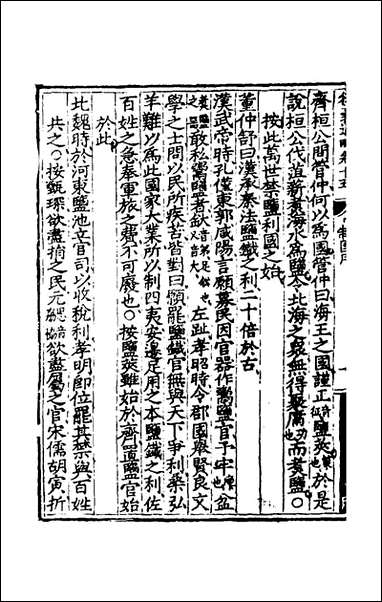 齊桓公問管仲何以為國管仲曰海王之國謹正音征鹽筴也於是
說桓公伐菹薪煮海水為鹽令北海之眾無得聚庸功也而煮鹽○
按此萬世禁鹽利國之始
董仲舒曰漢承秦法鹽鐵之利二十倍於古
漢武帝時孔僅東郭咸陽言願募民因官器作鬻鹽官予牢盆
敢私鬻鹽者釱左趾孝昭時令郡國舉賢良文
學之士問以民所疾苦皆對曰願罷鹽鐵官無與天下爭利桑弘
羊難以為此國家大業所以制四夷安邊足用之本鹽鐵之利佐
百姓之急奉軍旅之費不可廢也○按鹽筴雖始於齊置鹽官始
於此
北魏時於河東鹽池立官司以收稅利孝明即位罷其禁與百姓
共之○按甄琛欲盡捐之民元欲盡屬之官宋儒胡寅折